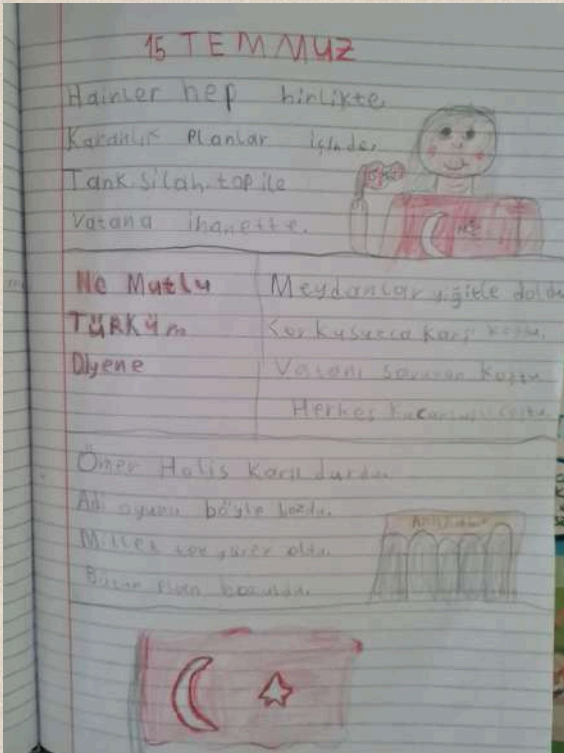 15 TEMMUZ
Hainler hep birlikte,
Karanlık planlar içinde,
Tank, silah, top ile
Vatana ihanette.
Ne Mutlu
TÜRKÜm
Diyene
Meydanlar yiğitle doldu
Korkusuzca karşı koydu,
Vatanı savunan koştu
Herkes
Ömer Halis karşı durdu.
Adi oyunu böyle bozdu.
Millet tek yürek oldu.
Bütün plan bozuldu.